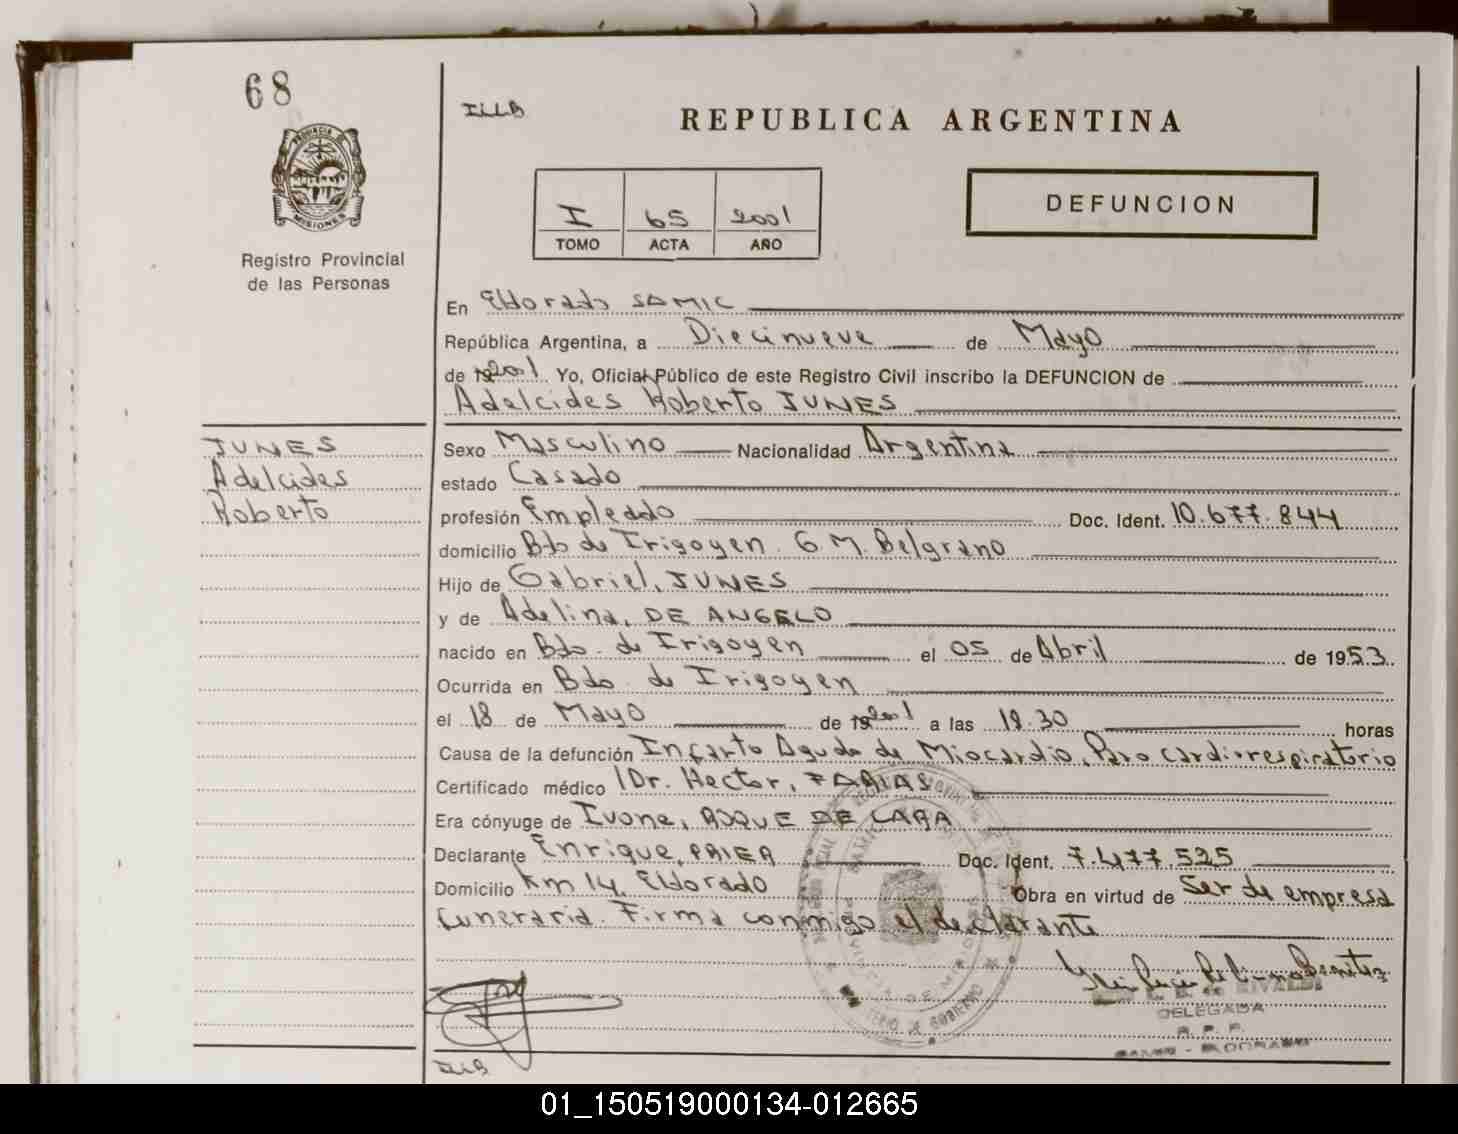 68
ILLB
REPUBLICA ARGENTINA
PROVINCIA
MISIONES
I 65 2001
TOMO ACTA AÑO
DEFUNCION
Registro Provincial
de las Personas
En Eldorado SAMIC
República Argentina, a Diecinueve de Mayo
de 2001 Yo, Oficial Público de este Registro Civil inscribo la DEFUNCION de
Adelcides Roberto JUNES
JUNES
Adelcides
Roberto
Sexo Masculino Nacionalidad Argentina
estado Casado
profesión Empleado Doc. Ident. 10.677.844
domicilio Bdo de Irigoyen. G.M. Belgrano
Hijo de Gabriel, JUNES
y de Adelina, DE ANGELO
nacido en Bdo. de Irigoyen el 05 de Abril de 1953
Ocurrida en Bdo. de Irigoyen
el 18 de Mayo de 2001 a las 19.30 horas
Causa de la defunción Infarto Agudo de Miocardio, Paro Cardiorespiratorio
Certificado médico Dr. Hector, FARIAS
Era cónyuge de Ivone, ROQUE DE LARA
Declarante Enrique, PRIER Doc. Ident. 7.477.525
Domicilio Km 14. Eldorado Obra en virtud de Ser de empresa
funeraria. Firma conmigo el declarante
DE RIVALDI
DELEGADA
R. P. P.
SAMIC - ELDORADO
PROVINCIA DE MISIONES
MINISTERIO DE GOBIERNO
01_150519000134-012665